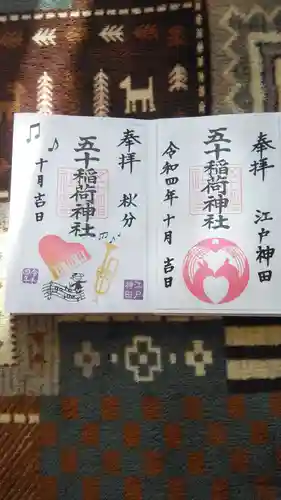 奉拝
江戸神田
五十稲荷神社
令和四年十月吉日
奉拝
秋分
五十稲荷神社
十月吉日
江戸神田